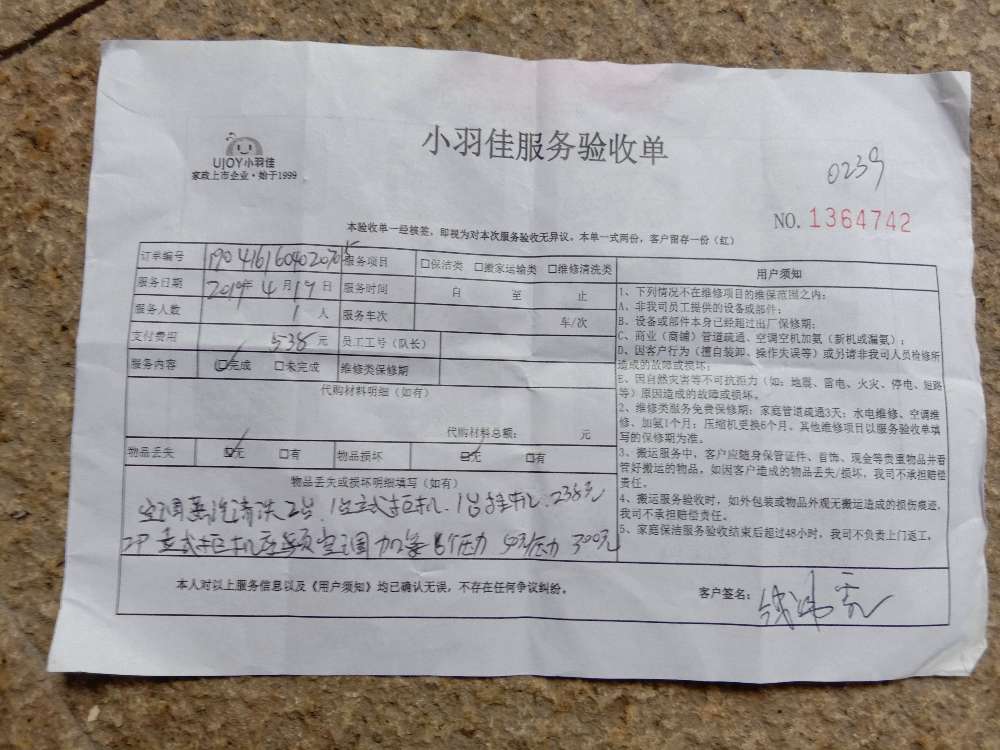 UJOY小羽佳
家政上市企业·始于1999
小羽佳服务验收单
0239
NO. 1364742
本验收单一经核签，即视为对本次服务验收无异议。本单一式两份，客户留存一份（红）
订单编号 服务项目 □保洁类 □搬家运输类 □维修清洗类
服务日期 2019年 4月 19日 服务时间 自 至 止
服务人数 1 人 服务车次 车/次
支付费用 538 元 员工工号（队长）
服务内容 ☑完成 □未完成 维修类保修期
代购材料明细（如有）
代购材料总额： 元
物品丢失 ☑无 □有 物品损坏 ☑无 □有
物品丢失或损坏明细填写（如有）
清洗2台．1台立式柜机．1台挂机．238元
空调加 压力 50元/压力 300元
本人对以上服务信息以及《用户须知》均已确认无误，不存在任何争议纠纷。
客户签名：
用户须知
1、下列情况不在维修项目的维保范围之内：
A、非我司员工提供的设备或部件；
B、设备或部件本身已经超过出厂保修期；
C、商业（商铺）管道疏通、空调空机加氨（新机或漏氨）；
D、因客户行为（擅自装卸、操作失误等）或另请非我司人员检修所
造成的故障或损坏；
E、因自然灾害等不可抗拒力（如：地震、雷电、火灾、停电、短路
等）原因造成的故障或损坏。
2、维修类服务免费保修期：家庭管道疏通3天；水电维修、空调维
修、加氨1个月；压缩机更换6个月。其他维修项目以服务验收单填
写的保修期为准。
3、搬运服务中，客户应随身保管证件、首饰、现金等贵重物品并看
管好搬运的物品，如因客户造成的物品丢失/损坏，我司不承担赔偿
责任。
4、搬运服务验收时，如外包装或物品外观无搬运造成的损伤痕迹，
我司不承担赔偿责任。
5、家庭保洁服务验收结束后超过48小时，我司不负责上门返工。